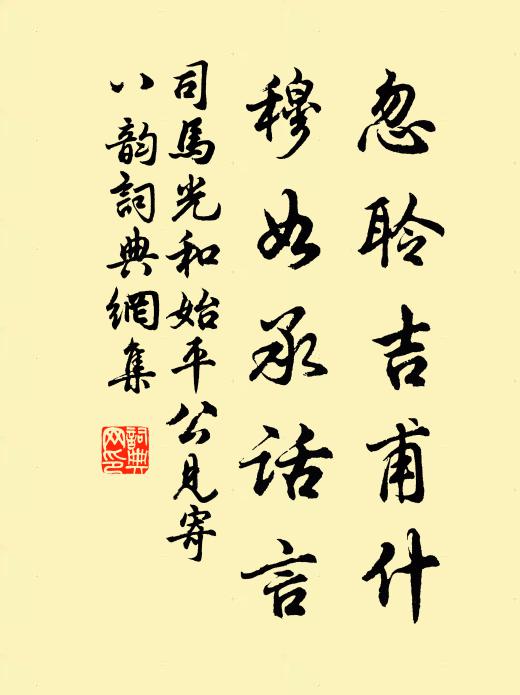 忽聆吉甫什
穆如承話言
司馬光和始平公見寄
八韵詞典網集
詞典
网印